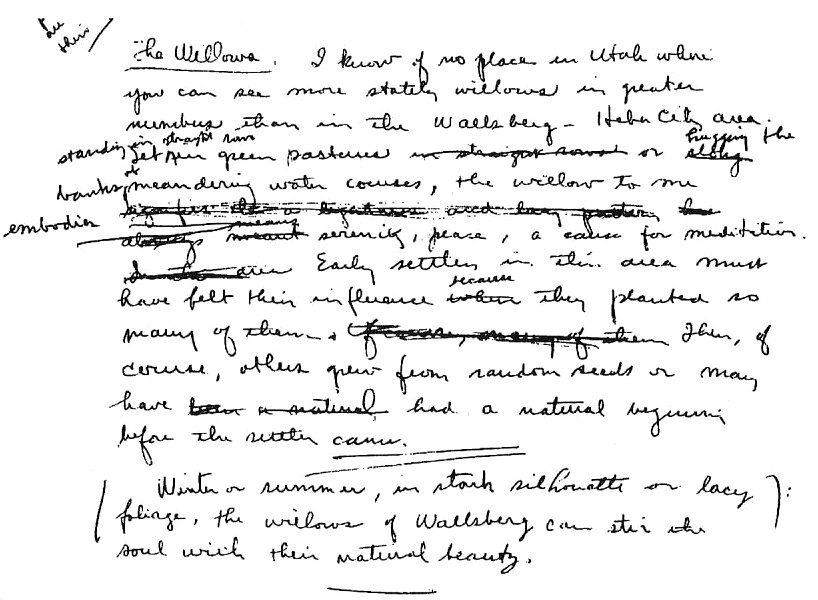 use this
The Willows. I know of no place in Utah where
you can see more stately willows in greater
numbers than in the Wallsberg - Heber City area.
standing in straight rows hugging the
Set in green pastures in straight rows or along
banks of meandering water courses, the willow to me
embodies
means
always meant serenity, peace, a cause for meditation.
area Early settlers in this area must
because
have felt their influence when they planted so
many of them. Of course, many of them Then, of
course, others grew from random seeds or may
have been a natural had a natural beginning
before the settlers came.
(Winter or summer, in stark silhouette or lacy
foliage, the willows of Wallsberg can stir the
soul with their natural beauty.)